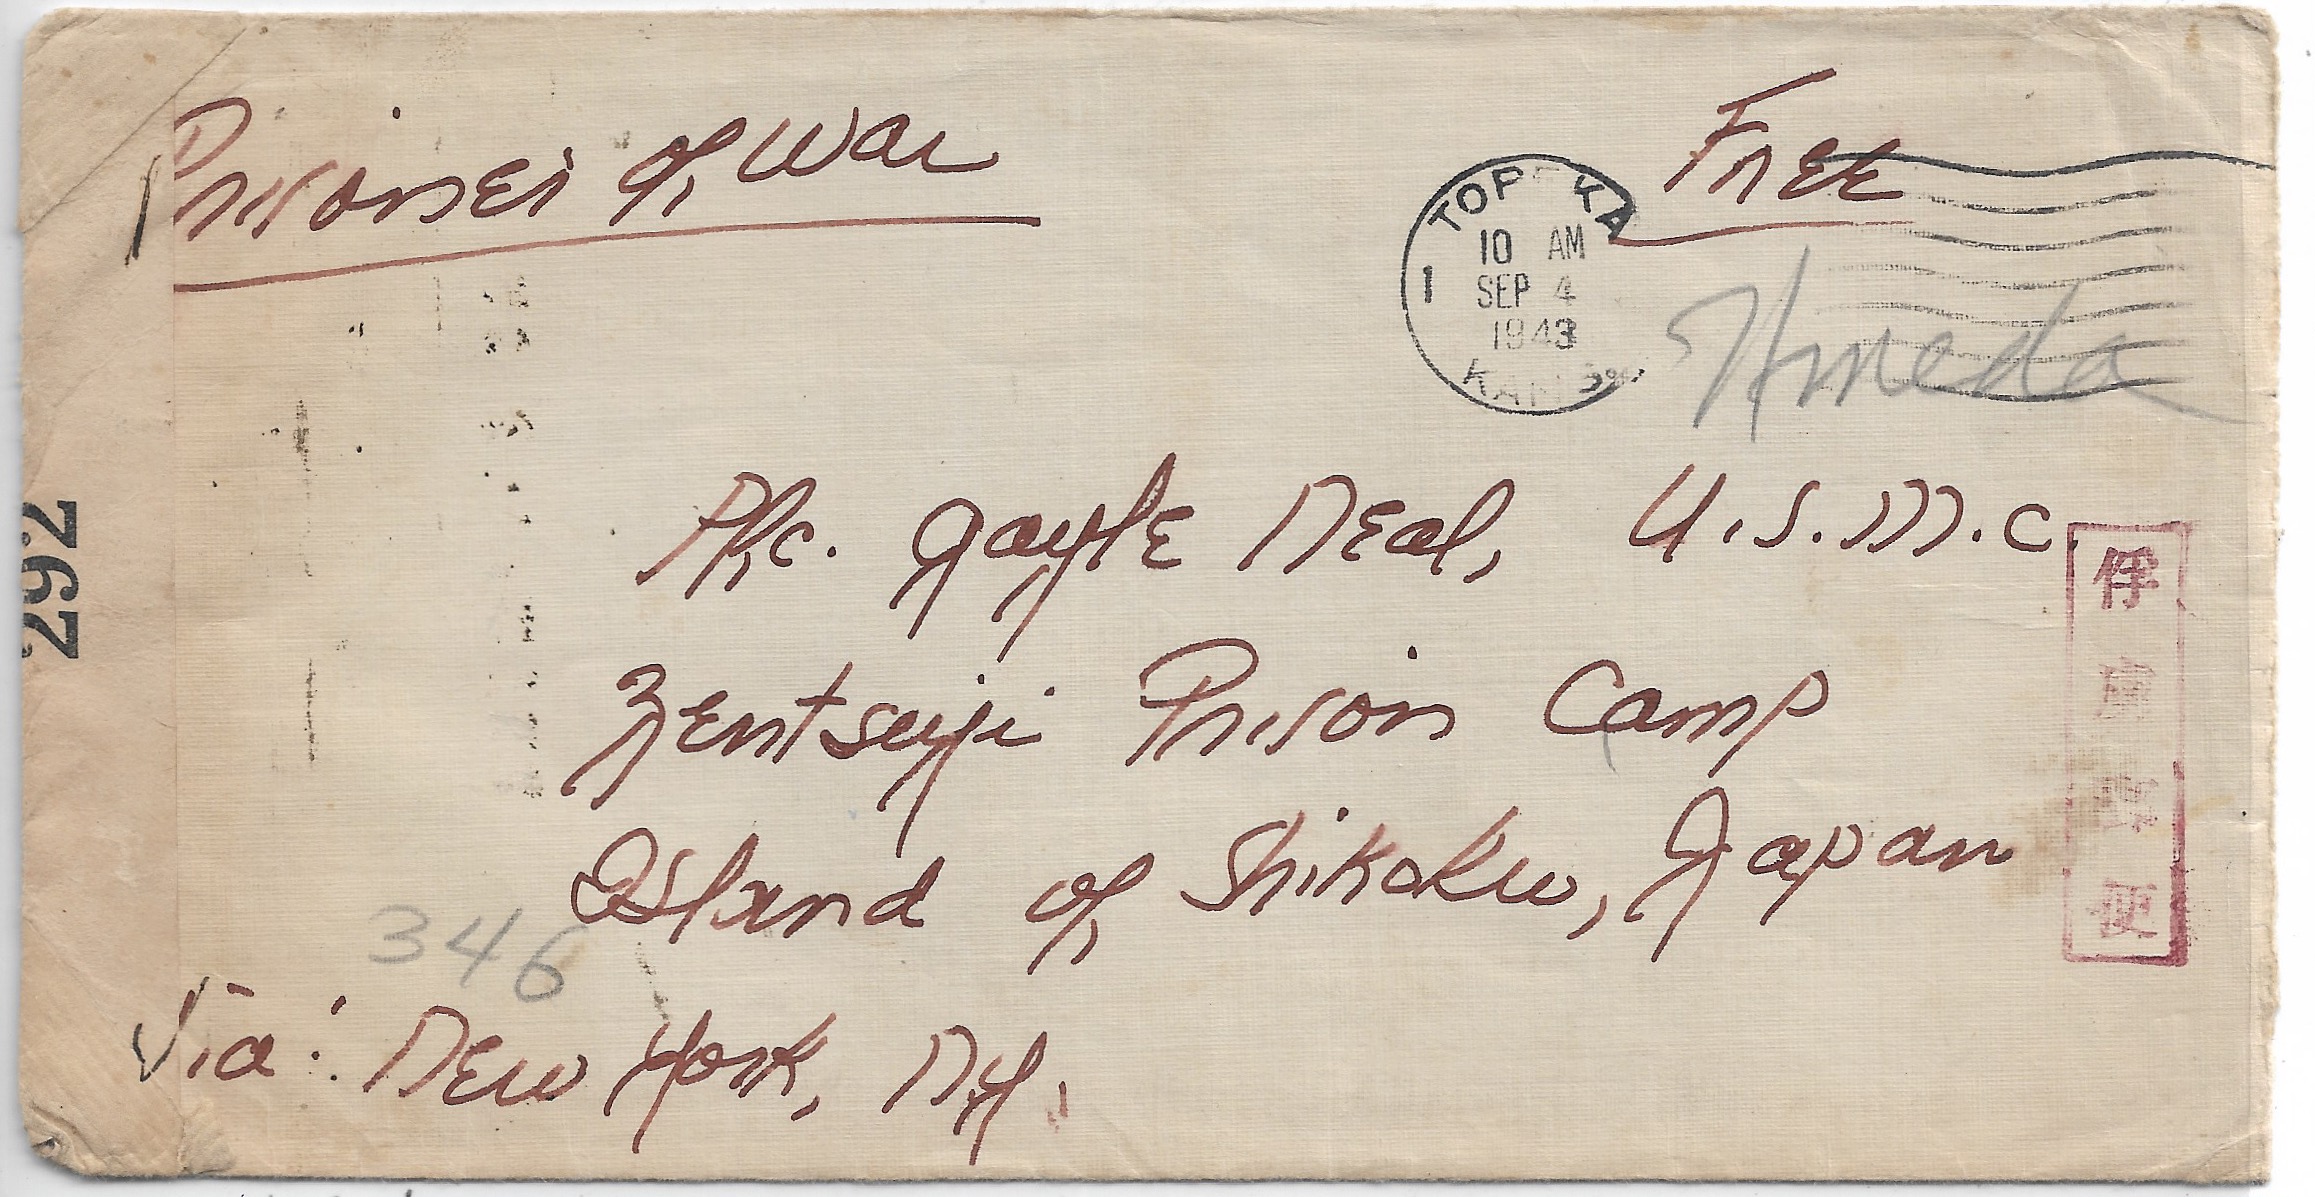 Prisoner of War
Free
TOPEKA
10 AM
1 SEP 4
1943
KANS
Umeda
Pfc. Gayle Neal, U.S.M.C.
Zentsuji Prison Camp
Island of Shikoku, Japan
346
Via: New York, N.Y.
292
俘虜郵便